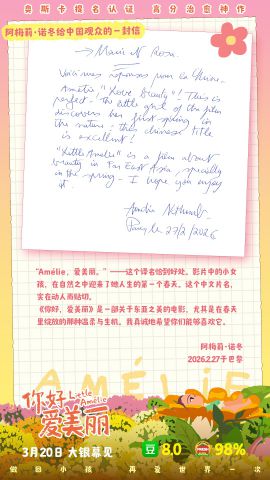 奥斯卡提名认证 高分治愈神作
阿梅莉·诺冬给中国观众的一封信
→ Marie N Rosa.
Voici mes réponses pour la Chine.
Amélie, "Love beauty"! This is
perfect - the little girl of the film
discovers her first spring in
the nature - this chinese title
is excellent!
"Little Amélie" is a film about
beauty in Far East Asia, specially
in the spring - I hope you enjoy
it.
Amélie Nothomb
Paris, le 27/2/2026
“Amélie，爱美丽。”——这个译名恰到好处。影片中的小女
孩，在自然之中迎来了她人生的第一个春天。这个中文片名，
实在动人而贴切。
《你好，爱美丽》是一部关于东亚之美的电影，尤其是在春天
里绽放的那种温柔与生机。我真诚地希望你们能够喜欢它。
阿梅莉·诺冬
2026.2.27于巴黎
AMÉLIE
你好
Little Amélie
爱美丽
3月20日 大银幕见
豆 8.0
98%
做回小孩 再爱世界一次